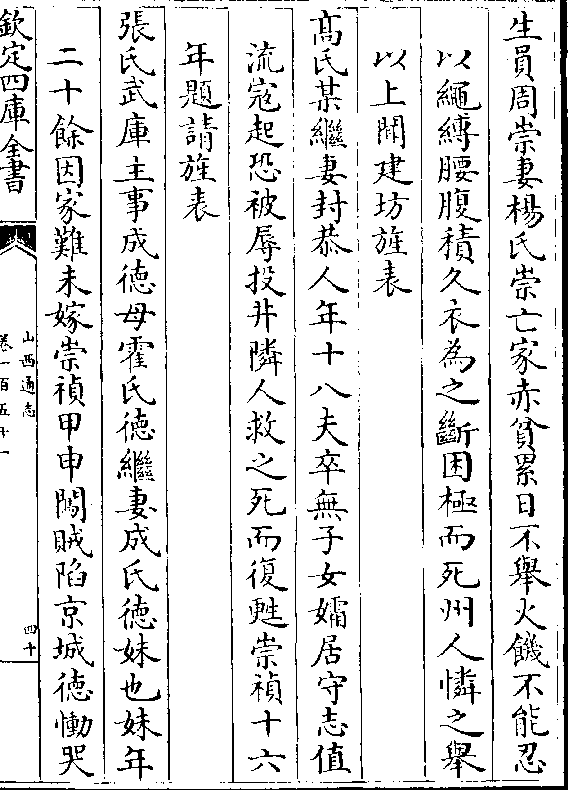 生員周崇妻楊氏崇亡家赤貧累日不舉火饑不能忍
以繩縛腰腹積久衣為之斷困極而死州人憐之舉
以上闡建坊旌表
髙氏某繼妻封恭人年十八夫卒無子女孀居守志值
流寇起恐被辱投井隣人救之死而復甦崇禎十六
年題請旌表
張氏武庫主事成徳母霍氏徳繼妻成氏徳妹也妹年
二十餘因家難未嫁崇禎甲申闖賊陷京城徳慟哭
欽定四庫全書
山西通志
卷一百五十一
四十